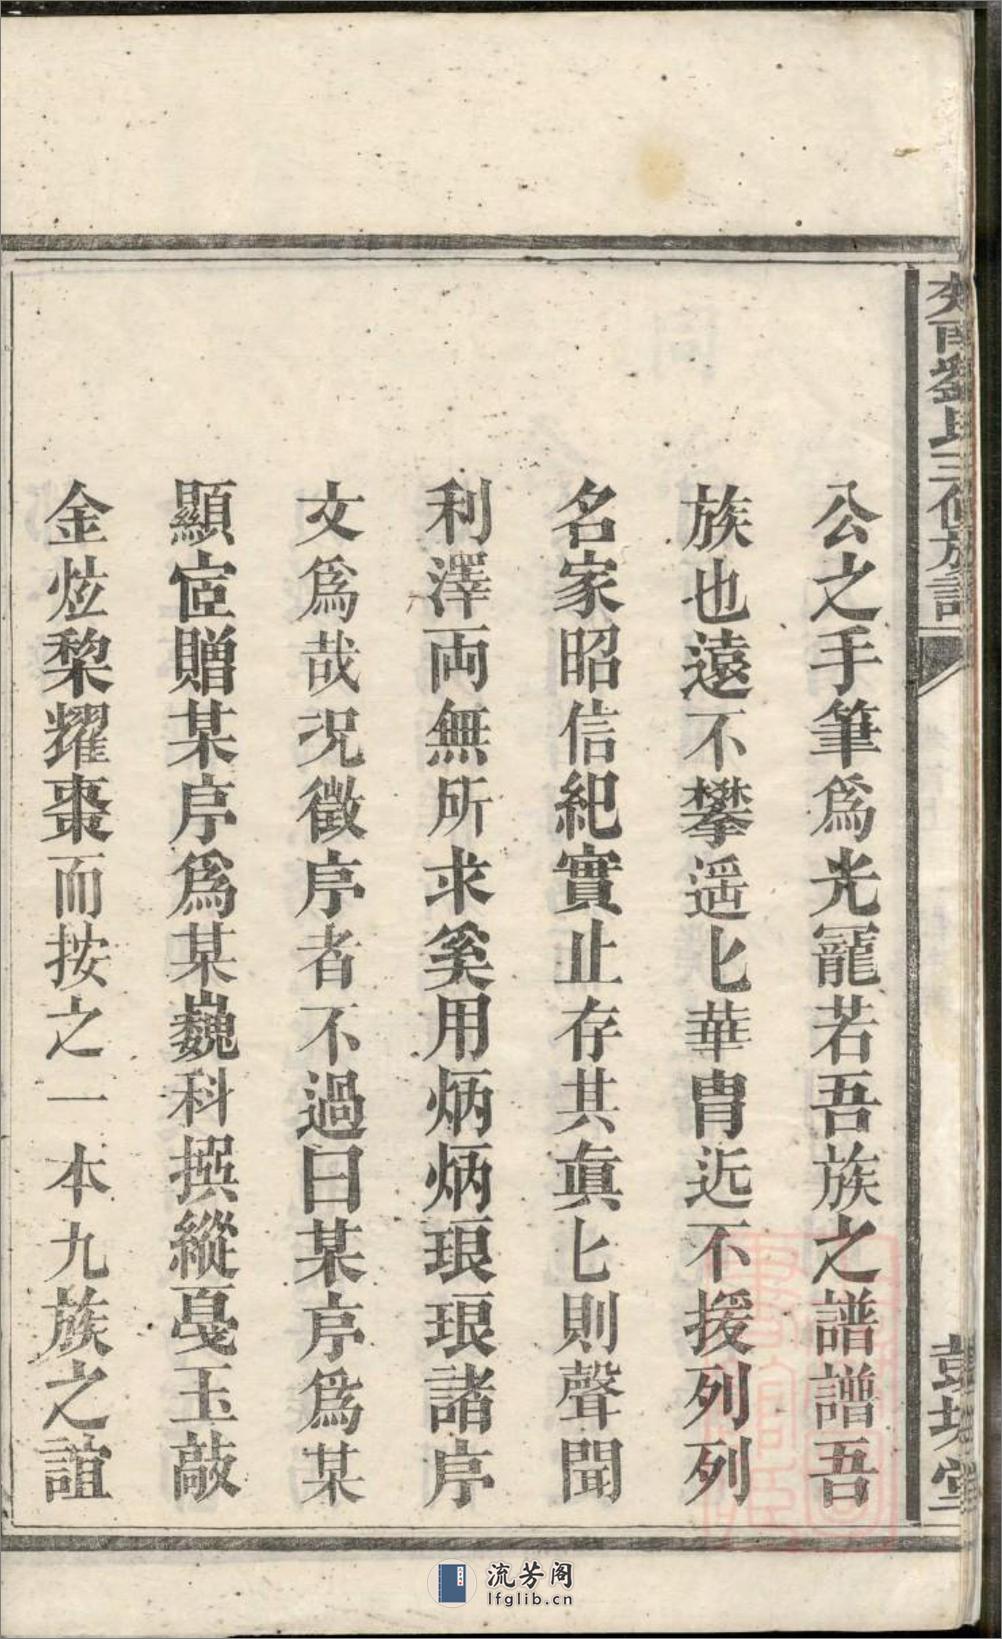 公之手筆爲光寵若吾族之譜譜吾
族也遠不攀遥匕華胄近不援列列
名家昭信紀實止存其眞匕則聲聞
利澤両無所求奚用炳炳琅琅諸序
文爲哉况徵序者不過曰某序爲某
顯宦贈某序爲某巍科撰縱戞玉敲
金炫棃耀棗而按之一本九族之誼
劉氏三修族譜
彭城堂
流芳阁
lfglib.cn